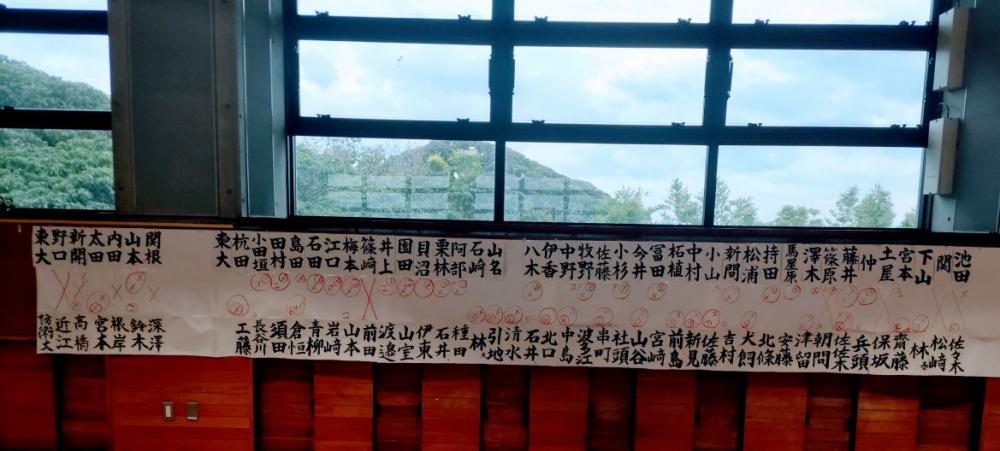 池田
関
下山
宮本
土屋
仲
藤井
篠原
澤木
馬屋原
持田
松浦
新間
小山
中村
柘植
冨田
今井
小杉
佐藤
牧野
中野
伊香
八木
山名
石崎
阿部
栗林
貝沼
園田
井上
篠崎
梅本
江口
石田
島田
田村
小田垣
杭田
東大
関根
山本
内田
太田
新開
野口
東大
佐々木
松崎
林
齋藤
保坂
兵頭
佐々木
津留
安藤
北條
犬飼
吉村
佐藤
新見
前島
宮崎
山谷
社頭
串町
中島
北口
石井
清水
引地
林
種田
石井
伊東
山室
渡邉
前田
山本
岩崎
青柳
倉恒
須田
長谷川
工藤
深澤
鈴木
根岸
宮本
高橋
近江
防衛大